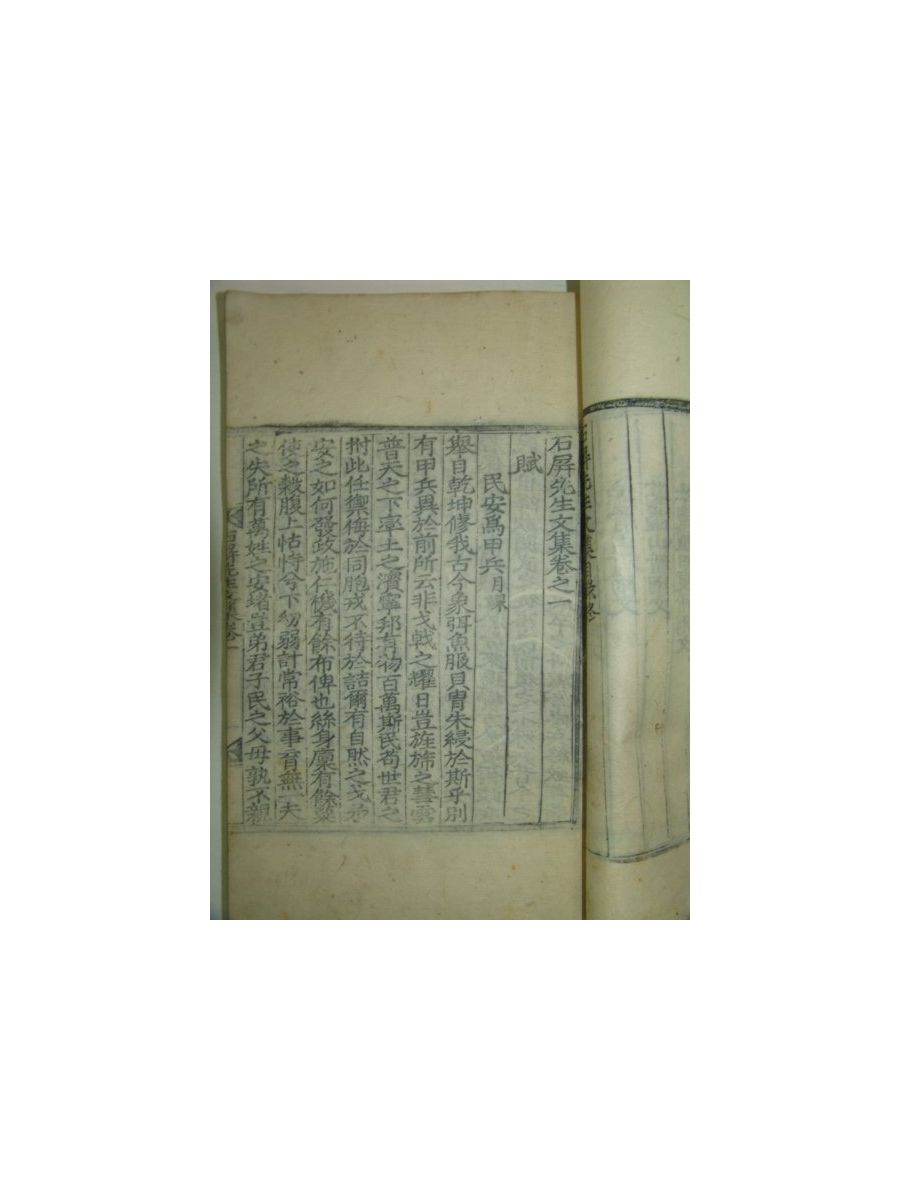 石屛先生文集卷之一
賦
民安爲甲兵 月課
擧目乾坤修我古今象弭魚服貝冑朱綅於斯乎別
有甲兵異於前所云非戈戟之耀日豈旌旆之彗雲
普天之下率土之濱寧邦有物百萬斯民苟世君之
拊此任禦侮於同胞戎不待於詰爾有自然之戈矛
安之如何發政施仁機有餘布俾也絲身廩有餘粟
使之穀腹上怙恃兮下幼弱計常裕於事育無一夫
之失所有萬姓之安緖豈弟君子民之父母孰不親
石屛先生文集卷一